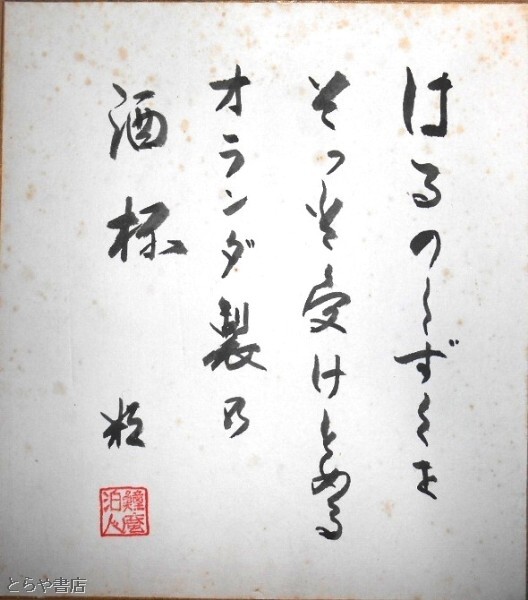 はるのしずくを
そっと受けとめる
オランダ製の
酒杯
とらや書店